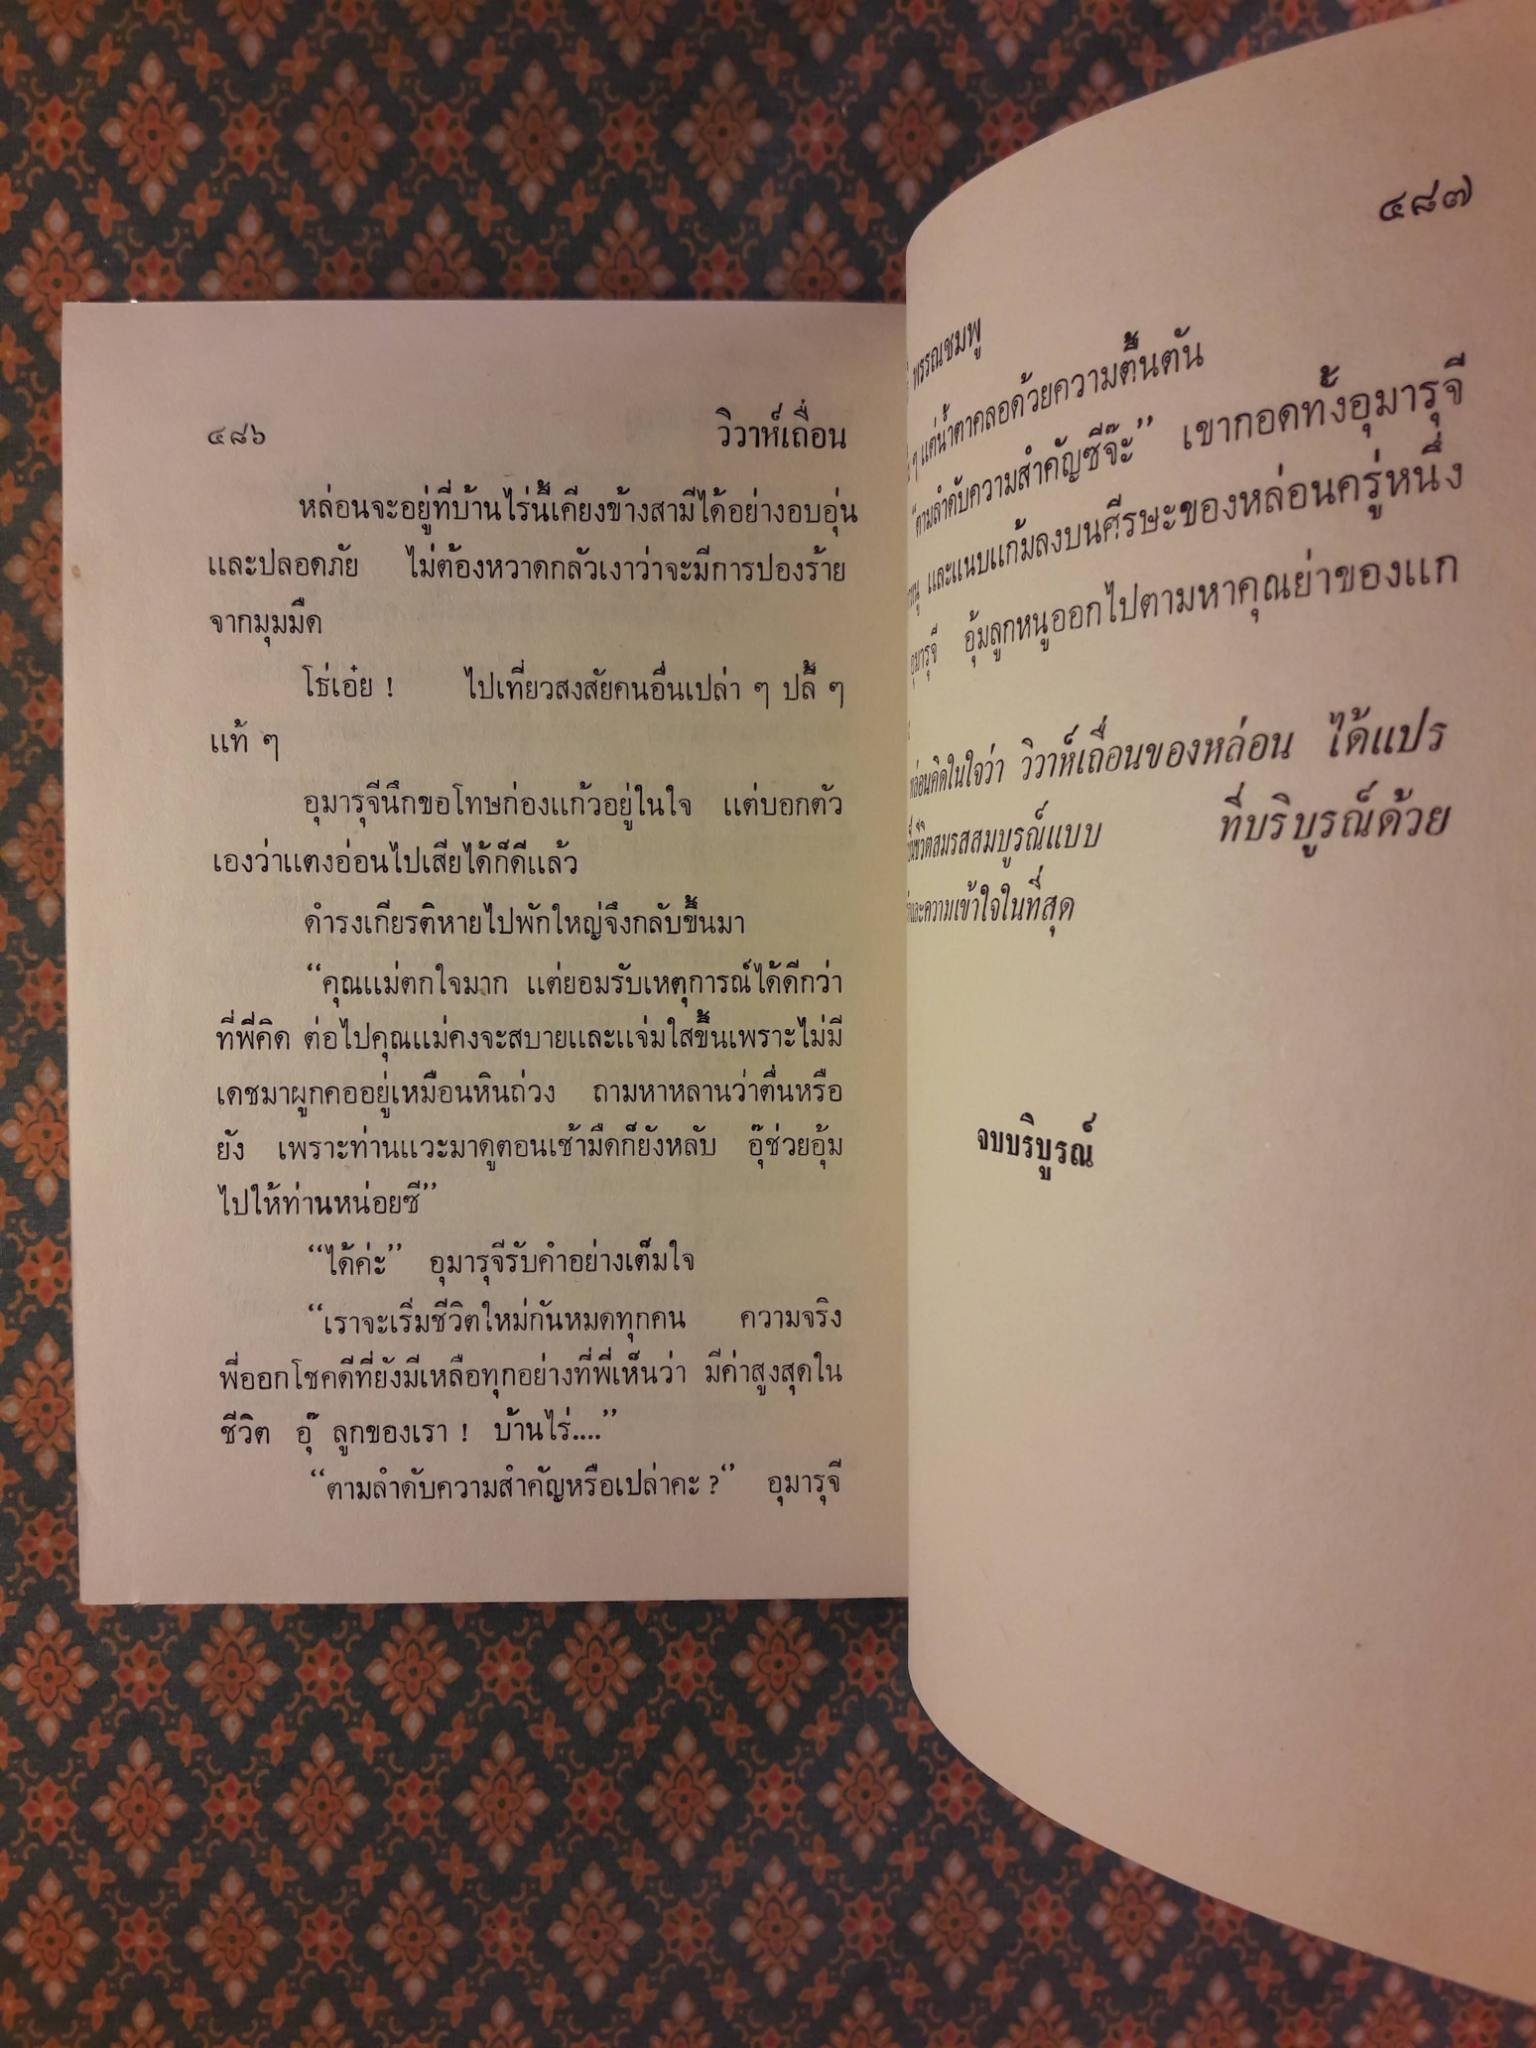 ๔๘๖ วิวาห์เถื่อน
หล่อนจะอยู่ที่บ้านไร่นี้เคียงข้างสามีได้อย่างอบอุ่น
และปลอดภัย ไม่ต้องหวาดกลัวเงาว่าจะมีการปองร้าย
จากมุมมืด
โธ่เอ๋ย ! ไปเที่ยวสงสัยคนอื่นเปล่า ๆ ปลี้ ๆ
แท้ ๆ
อุมารุจีนึกขอโทษก่องแก้วอยู่ในใจ แต่บอกตัว
เองว่าแตงอ่อนไปเสียได้ก็ดีแล้ว
ดำรงเกียรติหายไปพักใหญ่จึงกลับขึ้นมา
“คุณแม่ตกใจมาก แต่ยอมรับเหตุการณ์ได้ดีกว่า
ที่พี่คิด ต่อไปคุณแม่คงจะสบายและแจ่มใสขึ้นเพราะไม่มี
เดชมาผูกคออยู่เหมือนหินถ่วง ถามหาหลานว่าตื่นหรือ
ยัง เพราะท่านแวะมาดูตอนเช้ามืดก็ยังหลับ อุ๊ช่วยอุ้ม
ไปให้ท่านหน่อยซี”
“ได้ค่ะ” อุมารุจีรับคำอย่างเต็มใจ
“เราจะเริ่มชีวิตใหม่กันหมดทุกคน ความจริง
พี่ออกโชคดีที่ยังมีเหลือทุกอย่างที่พี่เห็นว่า มีค่าสูงสุดใน
ชีวิต อุ๊ ลูกของเรา ! บ้านไร่....”
“ตามลำดับความสำคัญหรือเปล่าคะ ?“ อุมารุจี
๔๘๗
พรรณชมพู
ๆ แต่น้ำตาคลอด้วยความตื้นตัน
“ตามลำดับความสำคัญซีจ๊ะ” เขากอดทั้งอุมารุจี
และแนบแก้มลงบนศีรษะของหล่อนครู่หนึ่ง
อุมารุจี อุ้มลูกหนูออกไปตามหาคุณย่าของแก
หล่อนคิดในใจว่า วิวาห์เถื่อนของหล่อน ได้แปร
ชีวิตสมรสสมบูรณ์แบบ ที่บริบูรณ์ด้วย
และความเข้าใจในที่สุด
จบบริบูรณ์